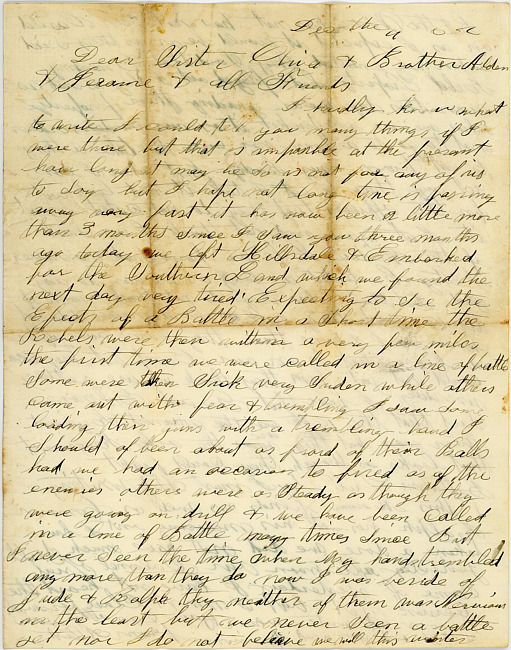 Dec the
Dear Sister & Brother Alden
& Jerome & all Friends
I hardly know what
to write I could tel you many things if I
were there but that is imposible at the present
how long it may be so is not for any of us
to say but I hope not long time is passing
away very fast it has now been a little more
than 3 months since I saw you three months
ago today we left Hillsdale & Embarked
for the Southern Land which we found the
next day very tired Expecting to see the
Efects of a Battle in a short time the
Rebels were then within a very few miles
the first time we were called in a line of battle
Some were then Sick very Suden while others
came out with fear & trembling I saw some
loading their guns with a trembling hand I
should of been about as fraid of their Balls
had we had an occasion to fired as of the
enemies others were as Steady as though they
were going on drill & we have been Called
in a line of Battle many times since But
I never Seen the time when my hands trembled
any more than they do now I was beside of
Jude & Ralph they neither of them was Nervious
in the least but we never Seen a battle
yet nor I do not believe we will this winter